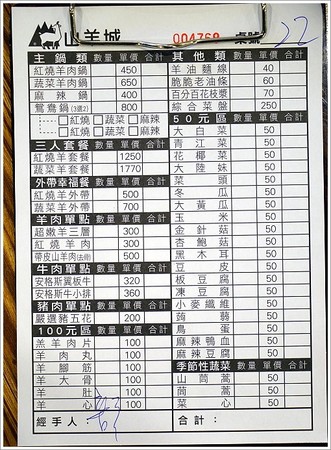 山羊城
004769 桌號 22
主鍋類 數量 單價 合計
紅燒羊肉鍋 450
蔬菜羊肉鍋 650
麻辣鍋 400
鴛鴦鍋(3選2) 800
□紅燒 □蔬菜 □麻辣
□紅燒 □蔬菜 □麻辣
三人套餐 數量 單價 合計
紅燒羊套餐 1250
蔬菜羊套餐 1770
外帶幸福餐 數量 單價 合計
紅燒羊外帶 500
蔬菜羊外帶 700
羊肉單點 數量 單價 合計
超嫩羊三層 300
紅燒羊肉 300
帶皮山羊肉(去骨) 500
牛肉單點 數量 單價 合計
安格斯翼板牛 320
安格斯牛小排 360
豬肉單點 數量 單價 合計
嚴選豬五花 200
100元區 數量 單價 合計
羔羊肉片 100
羊肉丸 100
羊腳筋 100
羊大骨 100
羊肚 100
羊心 100
經手人:
其他類 數量 單價 合計
羊油麵線 40
脆脆老油條 60
百分百花枝漿 70
綜合菜盤 250
50元區 數量 單價 合計
大白菜 50
青江菜 50
花椰菜 50
大陸妹 50
菜頭 50
冬瓜 50
大黃瓜 50
玉米 50
金針菇 50
杏鮑菇 50
黑木耳 50
豆皮 50
板豆腐 50
凍豆腐 50
小麥纖維 50
蒟蒻 50
鳥蛋 50
麻辣鴨血 50
麻辣豆腐 50
季節性蔬菜 數量 單價 合計
山茼蒿 50
茼蒿 50
菜心 50
合計: